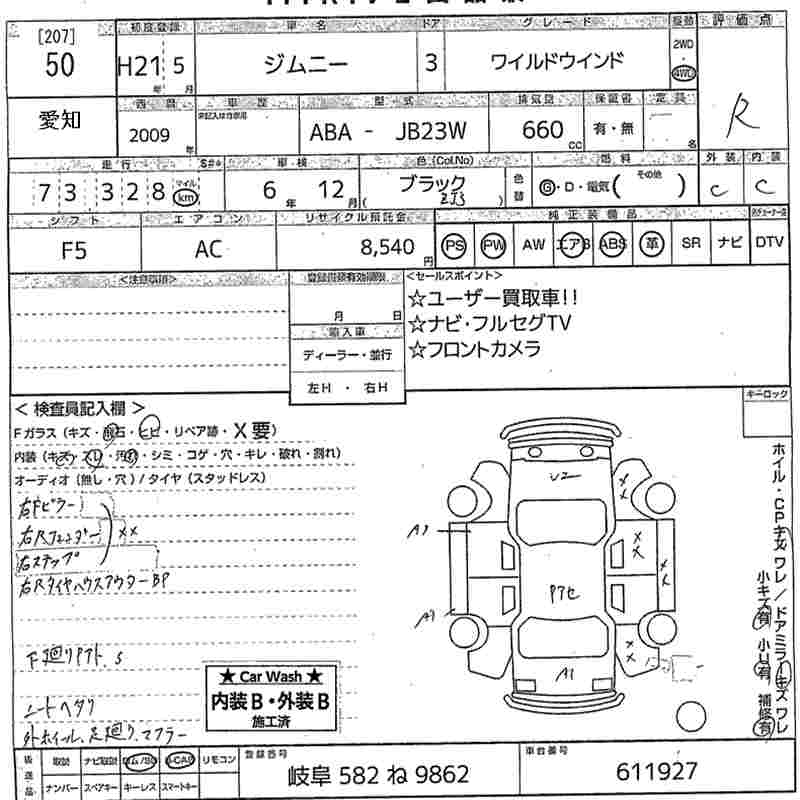 [207]
50
初度登録 車名 ドア グレード 駆動 評価点
H21 年 5 月 ジムニー 3 ワイルドウインド 2WD ・ 4WD
R
愛知
西暦 車歴 型式 排気量 保証書 定員
2009 年 ABA - JB23W 660 cc 有・無 名
走行 S#* 車検 色(Col.No) 燃料 外装 内装
73 328 マイル km 6 年 12 月 ブラック ZJ3 色替 G・D・電気( その他 ) C C
シフト エアコン リサイクル預託金 純正装備品
F5 AC 8,540 円 PS PW AW エアB ABS 革 SR ナビ DTV
<注意事項> 登録書類有効期限 <セールスポイント>
月 日
☆ユーザー買取車!!
☆ナビ・フルセグTV
☆フロントカメラ
輸入車
ディーラー・並行
左H ・ 右H
キーロック
< 検査員記入欄 >
Fガラス (キズ・飛石・ヒビ・リペア跡・X要)
内装 (キズ・スレ・汚れ・シミ・コゲ・穴・キレ・破れ・割れ)
オーディオ (無し・穴) / タイヤ (スタッドレス)
右Fピラー
右Rフェンダー XX
右ステップ
右Rタイヤハウスアウター BP
下廻りサフト S
シートヘタリ
外ホイール、足廻り、マフラー
U2
A3
P7セ
A1
ホイル・CPキズ ワレ / ドアミラーキズ ワレ
小キズ有 小U有 補修有
★ Car Wash ★
内装B・外装B
施工済
後送品 取説 ナビ取説 リモコン
ナンバー スペアキー キーレス スマートキー
登録番号 岐阜 582 ね 9862
車台番号 611927